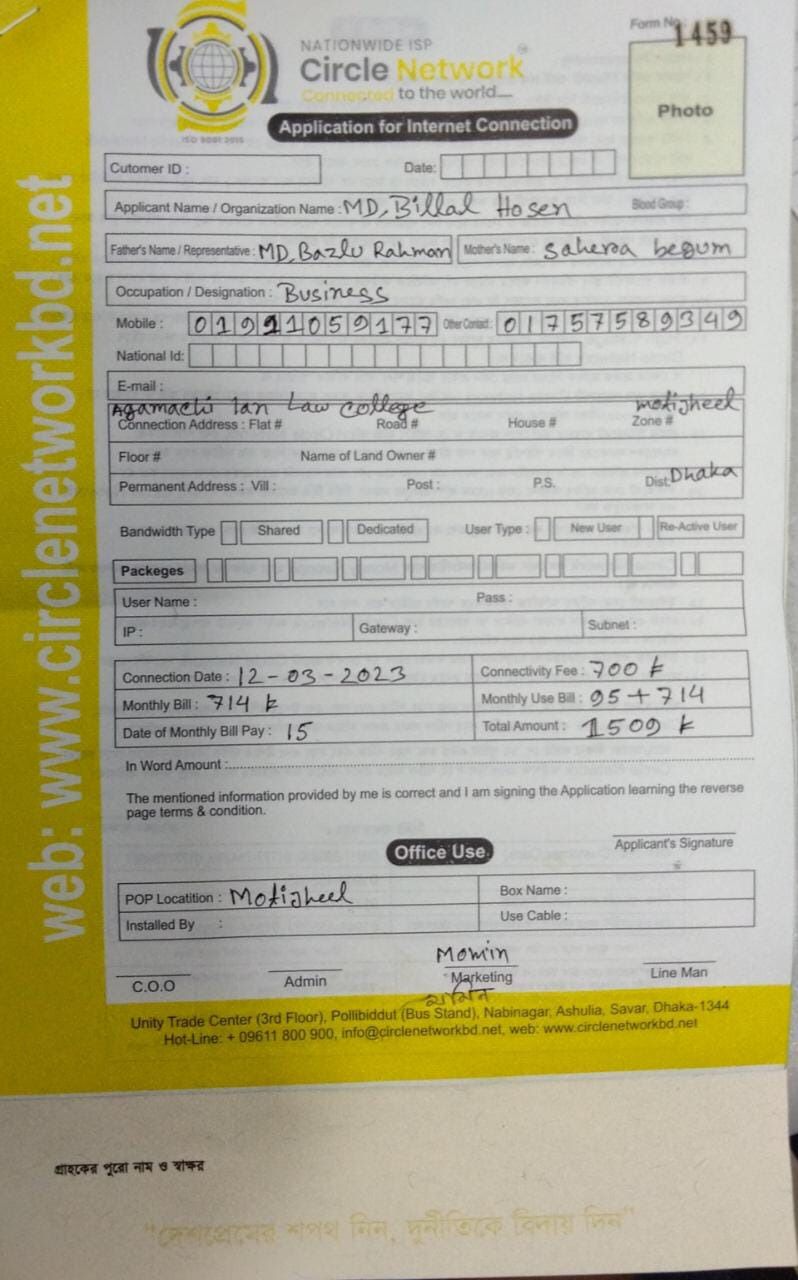 Form No. 1459
NATIONWIDE ISP
Circle Network
Connected to the world....
ISO 9001:2015
Photo
Application for Internet Connection
Cutomer ID :
Date:
Applicant Name / Organization Name : MD, Billal Hosen Blood Group :
Father's Name / Representative : MD, Bazlu Rahman Mother's Name : saheroa begum
Occupation / Designation : Business
Mobile : 01991059177 Other Contact : 01757589349
National Id:
E-mail :
Agamachi lan Law college motijheel
Connection Address : Flat # Road # House # Zone #
Floor # Name of Land Owner #
Permanent Address : Vill : Post : P.S. Dist: Dhaka
Bandwidth Type Shared Dedicated User Type : New User Re-Active User
Packeges
User Name : Pass :
IP : Gateway : Subnet :
Connection Date : 12-03-2023 Connectivity Fee : 700 ৳
Monthly Bill : 714 ৳ Monthly Use Bill : 95+714
Date of Monthly Bill Pay : 15 Total Amount : 1509 ৳
In Word Amount :
The mentioned information provided by me is correct and I am signing the Application learning the reverse
page terms & condition.
Applicant's Signature
Office Use
POP Locatition : Motijheel Box Name :
Installed By : Use Cable :
Momin
C.O.O Admin Marketing Line Man
Unity Trade Center (3rd Floor), Pollibiddut (Bus Stand), Nabinagar, Ashulia, Savar, Dhaka-1344
Hot-Line: + 09611 800 900, info@circlenetworkbd.net, web: www.circlenetworkbd.net
web: www.circlenetworkbd.net
গ্রাহকের পুরো নাম ও স্বাক্ষর
"দেশপ্রেমের শপথ নিন, দুর্নীতিকে বিদায় দিন"